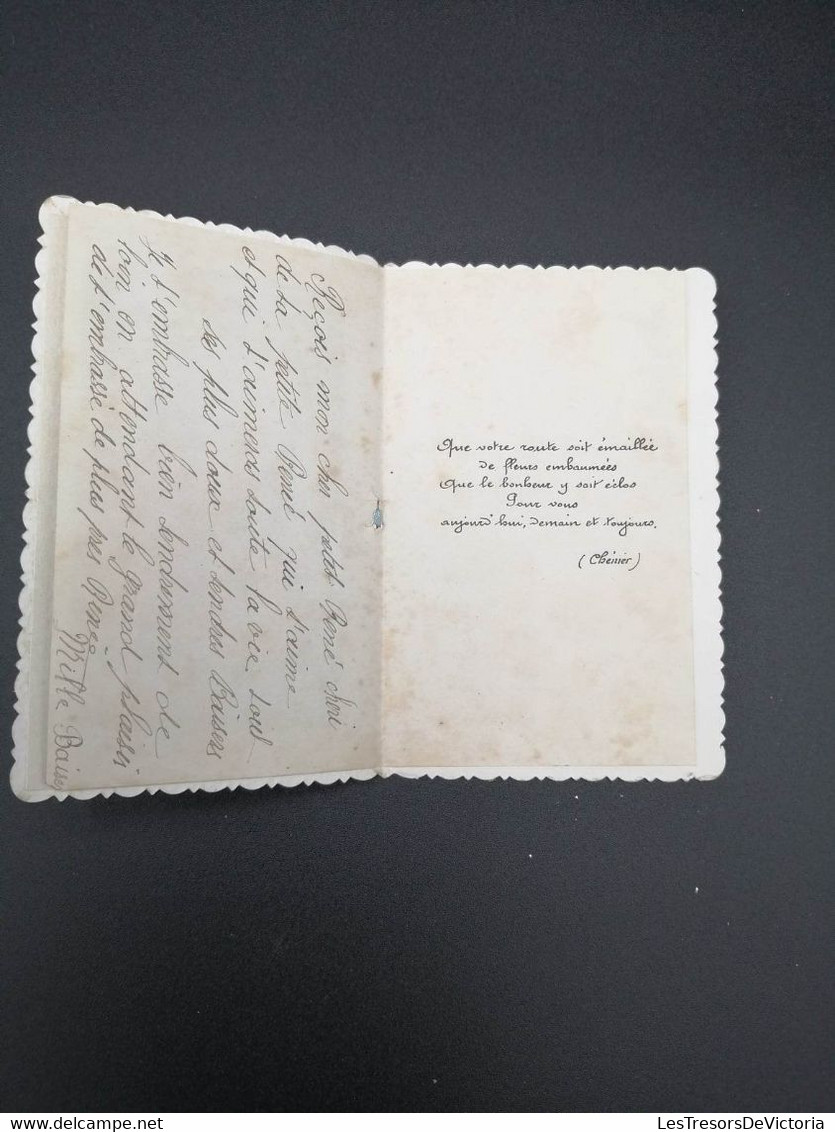 Reçois mon cher petit René chéri
de ta petite René qui t'aime
et qui t'aimeras toute la vie tout
ses plus doux et tendres Baisers
Je t'embrasse bien tendrement de
loin en attendant le grand plaisir
de t'embassé de plus près René
Mille Baisers
Que votre route soit émaillée
de fleurs embaumées
Que le bonheur y soit éclos
Pour vous
aujourd'hui, demain et toujours.
(Chénier)
delcampe.net
LesTresorsDeVictoria